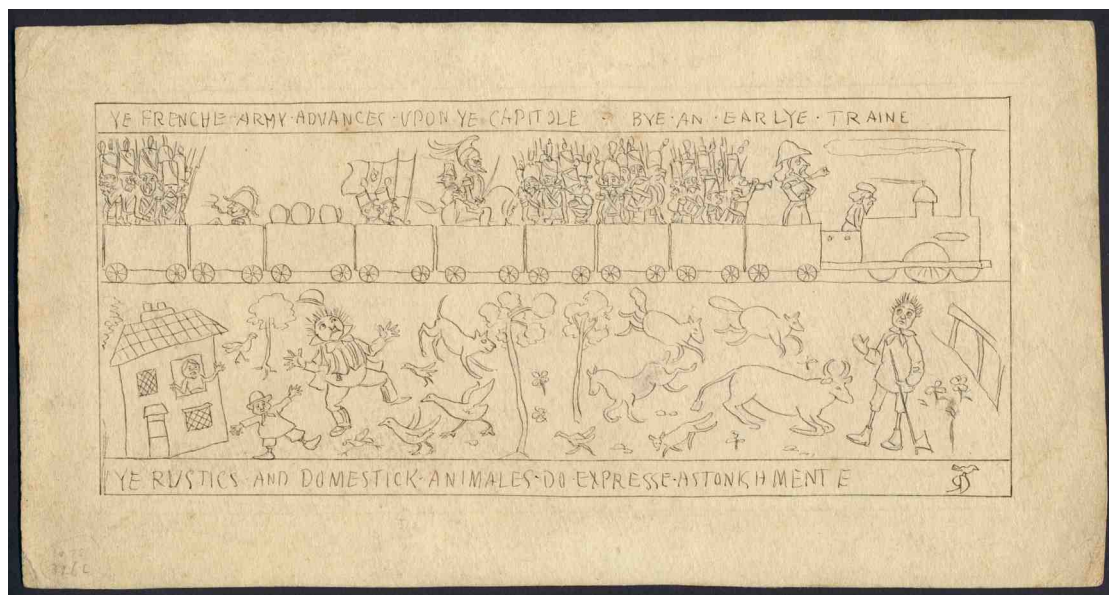 YE FRENCHE·ARMY·ADVANCES·UPON·YE·CAPITOLE · BYE·AN·EARLYE·TRAINE
YE RUSTICS AND DOMESTICK·ANIMALES·DO·EXPRESSE·ASTONISHMENTE